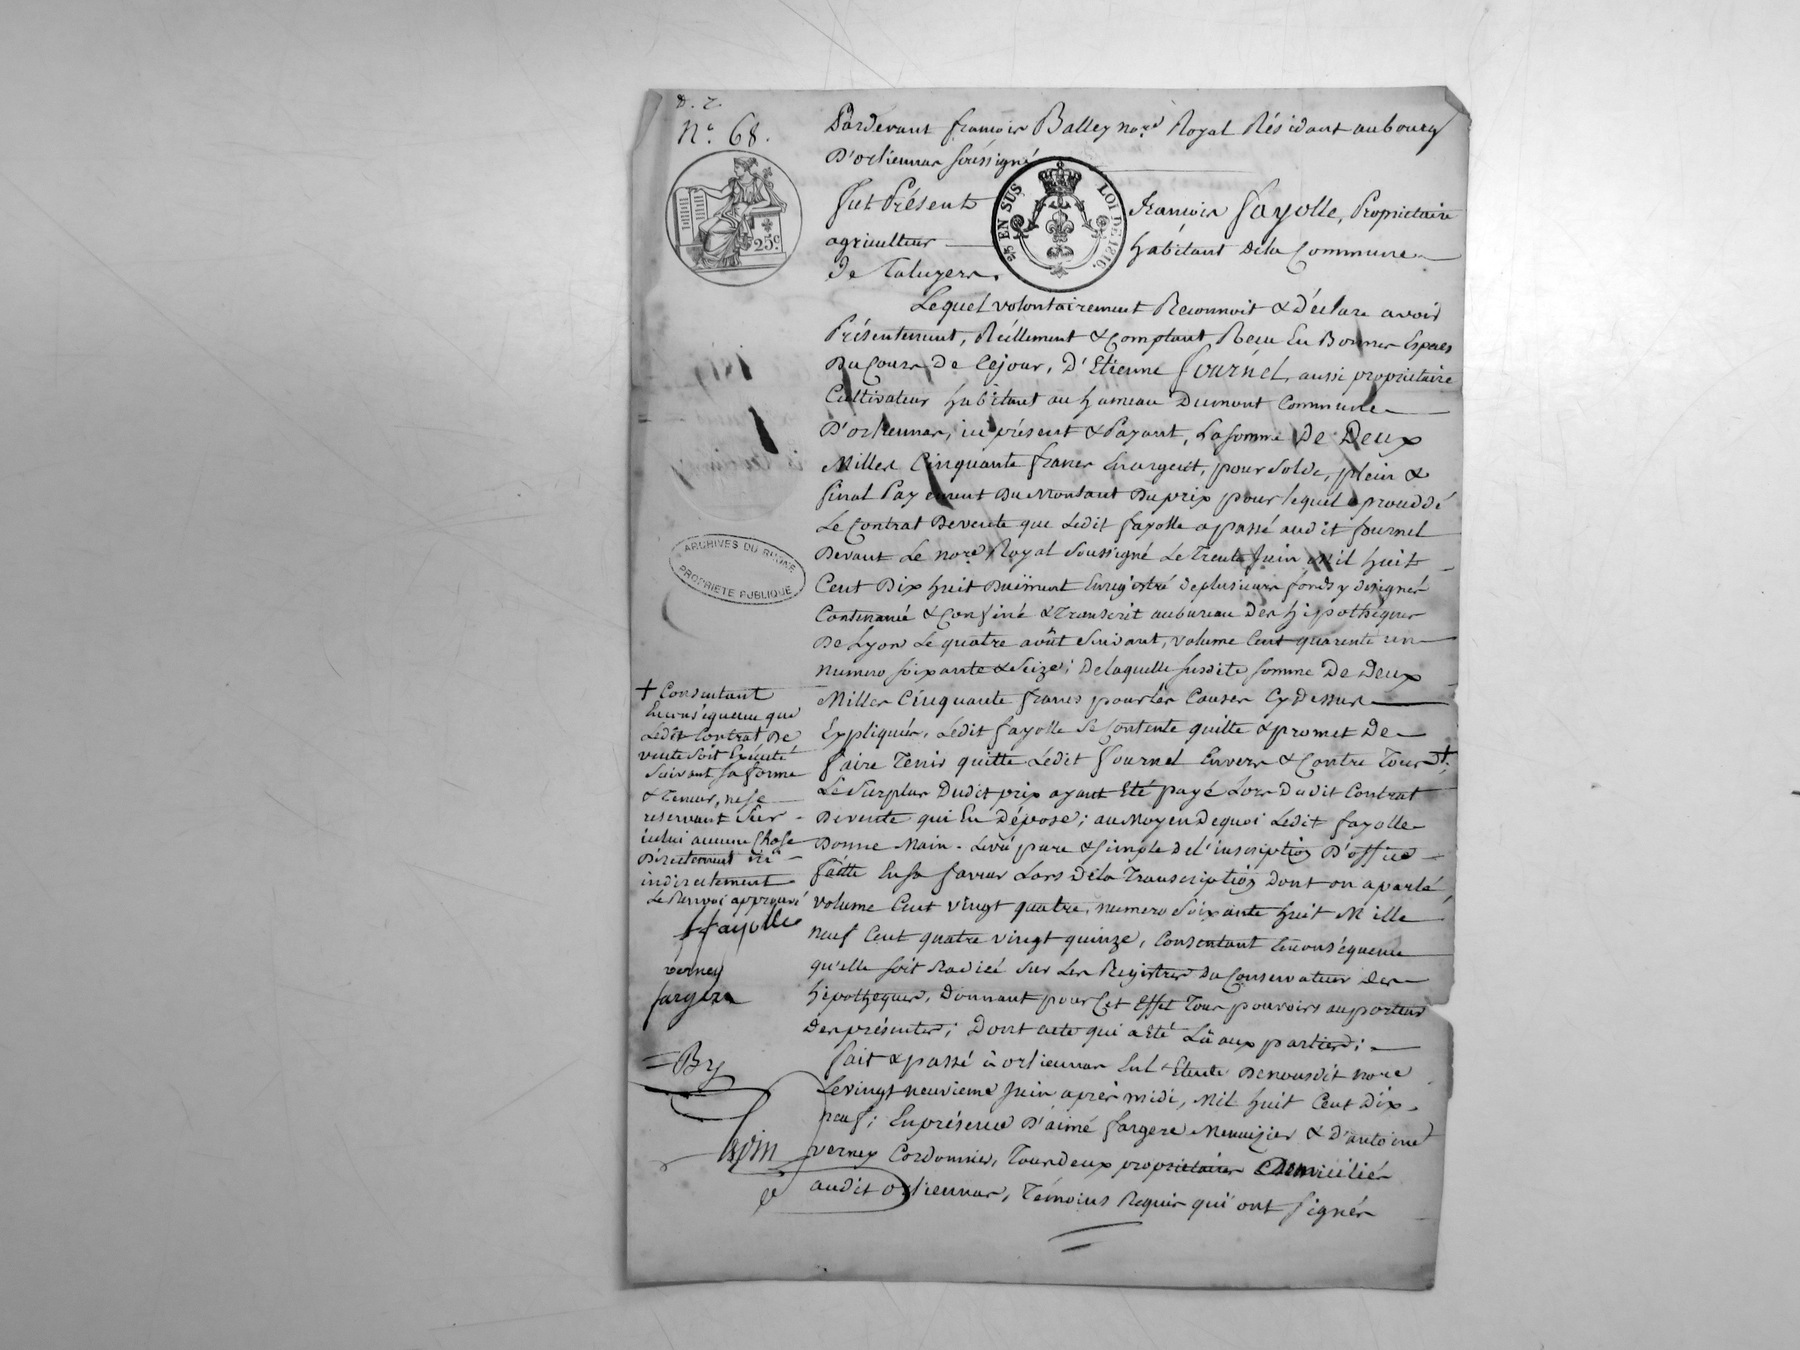 D. r.
N.° 68.
25.c
EN SUS LOI DE 1816.
Pardevant françois Balley no.re Royal Résidant au bourg
D'orliennas soussigné
fut Présent françois fayolle, Propriétaire
agriculteur habitant de la Commune
de Taluyers.
Lequel volontairement Reconnoit & déclare avoir
Présentement, Réellement & Comptant Reçu En Bonnes Espèces
Du Cours De Cejour, D'Etienne fournel, aussi propriétaire
Cultivateur habitant au hameau Dumont Commune
D'orliennas, ici présent & Payant, La somme De Deux
Milles Cinquante francs En argent, pour solde, plein &
final Payement Du Montant Du prix pour lequel a procédé
Le Contrat De vente que Ledit fayolle a passé audit fournel
Devant Le no.re Royal soussigné Le Trente Juin Mil huit
Cent Dix huit Duëment Enregistré de plusieurs fonds y désignés
Contenancé & Confiné & Transcrit au bureau Des hipothèques
De Lyon Le quatre août suivant, volume Cent quarente un
numero soixante & seize; De laquelle susdite somme De Deux
Milles Cinquante francs pour Les Causes Cy Dessus
Expliquées, Ledit fayolle se Contente quitte & promet De
faire Tenir quitte Lédit fournel Envers & Contre Tous +.
Le surplus Dudit prix ayant été payé Lors Dudit Contrat
De vente qui En dépose; au Moyen De quoi Lédit fayolle
Donne Main-Levée pure & simple De l'inscription D'office
faitte En sa faveur Lors Déla Transcription Dont on a parlé,
volume Cent vingt quatre, numero soixante huit Mille
neuf Cent quatre vingt quinze, Consentant Enconséquence
qu'elle soit Radiée sur Les Registres Du Conservateur Des
hipotheques, Donnant pour Cet Effet Tous pouvoirs au porteur
Des présentes; Dont acte qui a été Lu aux parties;
fait & passé à orliennas En L'Etude De nousdit no.re
Le vingt neuvieme Juin après midi, Mil huit Cent Dix-
neuf; En présence D'aimé fargere Menuizier & D'antoine
verney Cordonnier, Tous deux propriétaires Domiciliés
audit orliennas, Témoins Requis qui ont signés
ARCHIVES DU RHÔNE
PROPRIÉTÉ PUBLIQUE
+ Consentant
Enconséquence que
Lédit Contrat De
vente soit Exécuté
suivant sa forme
& Teneur, ne se
réservant sur
icelui aucune Chose
Directement ni
indirectement
Le Renvoi approuvé
f fayolle
verney
fargere
= By